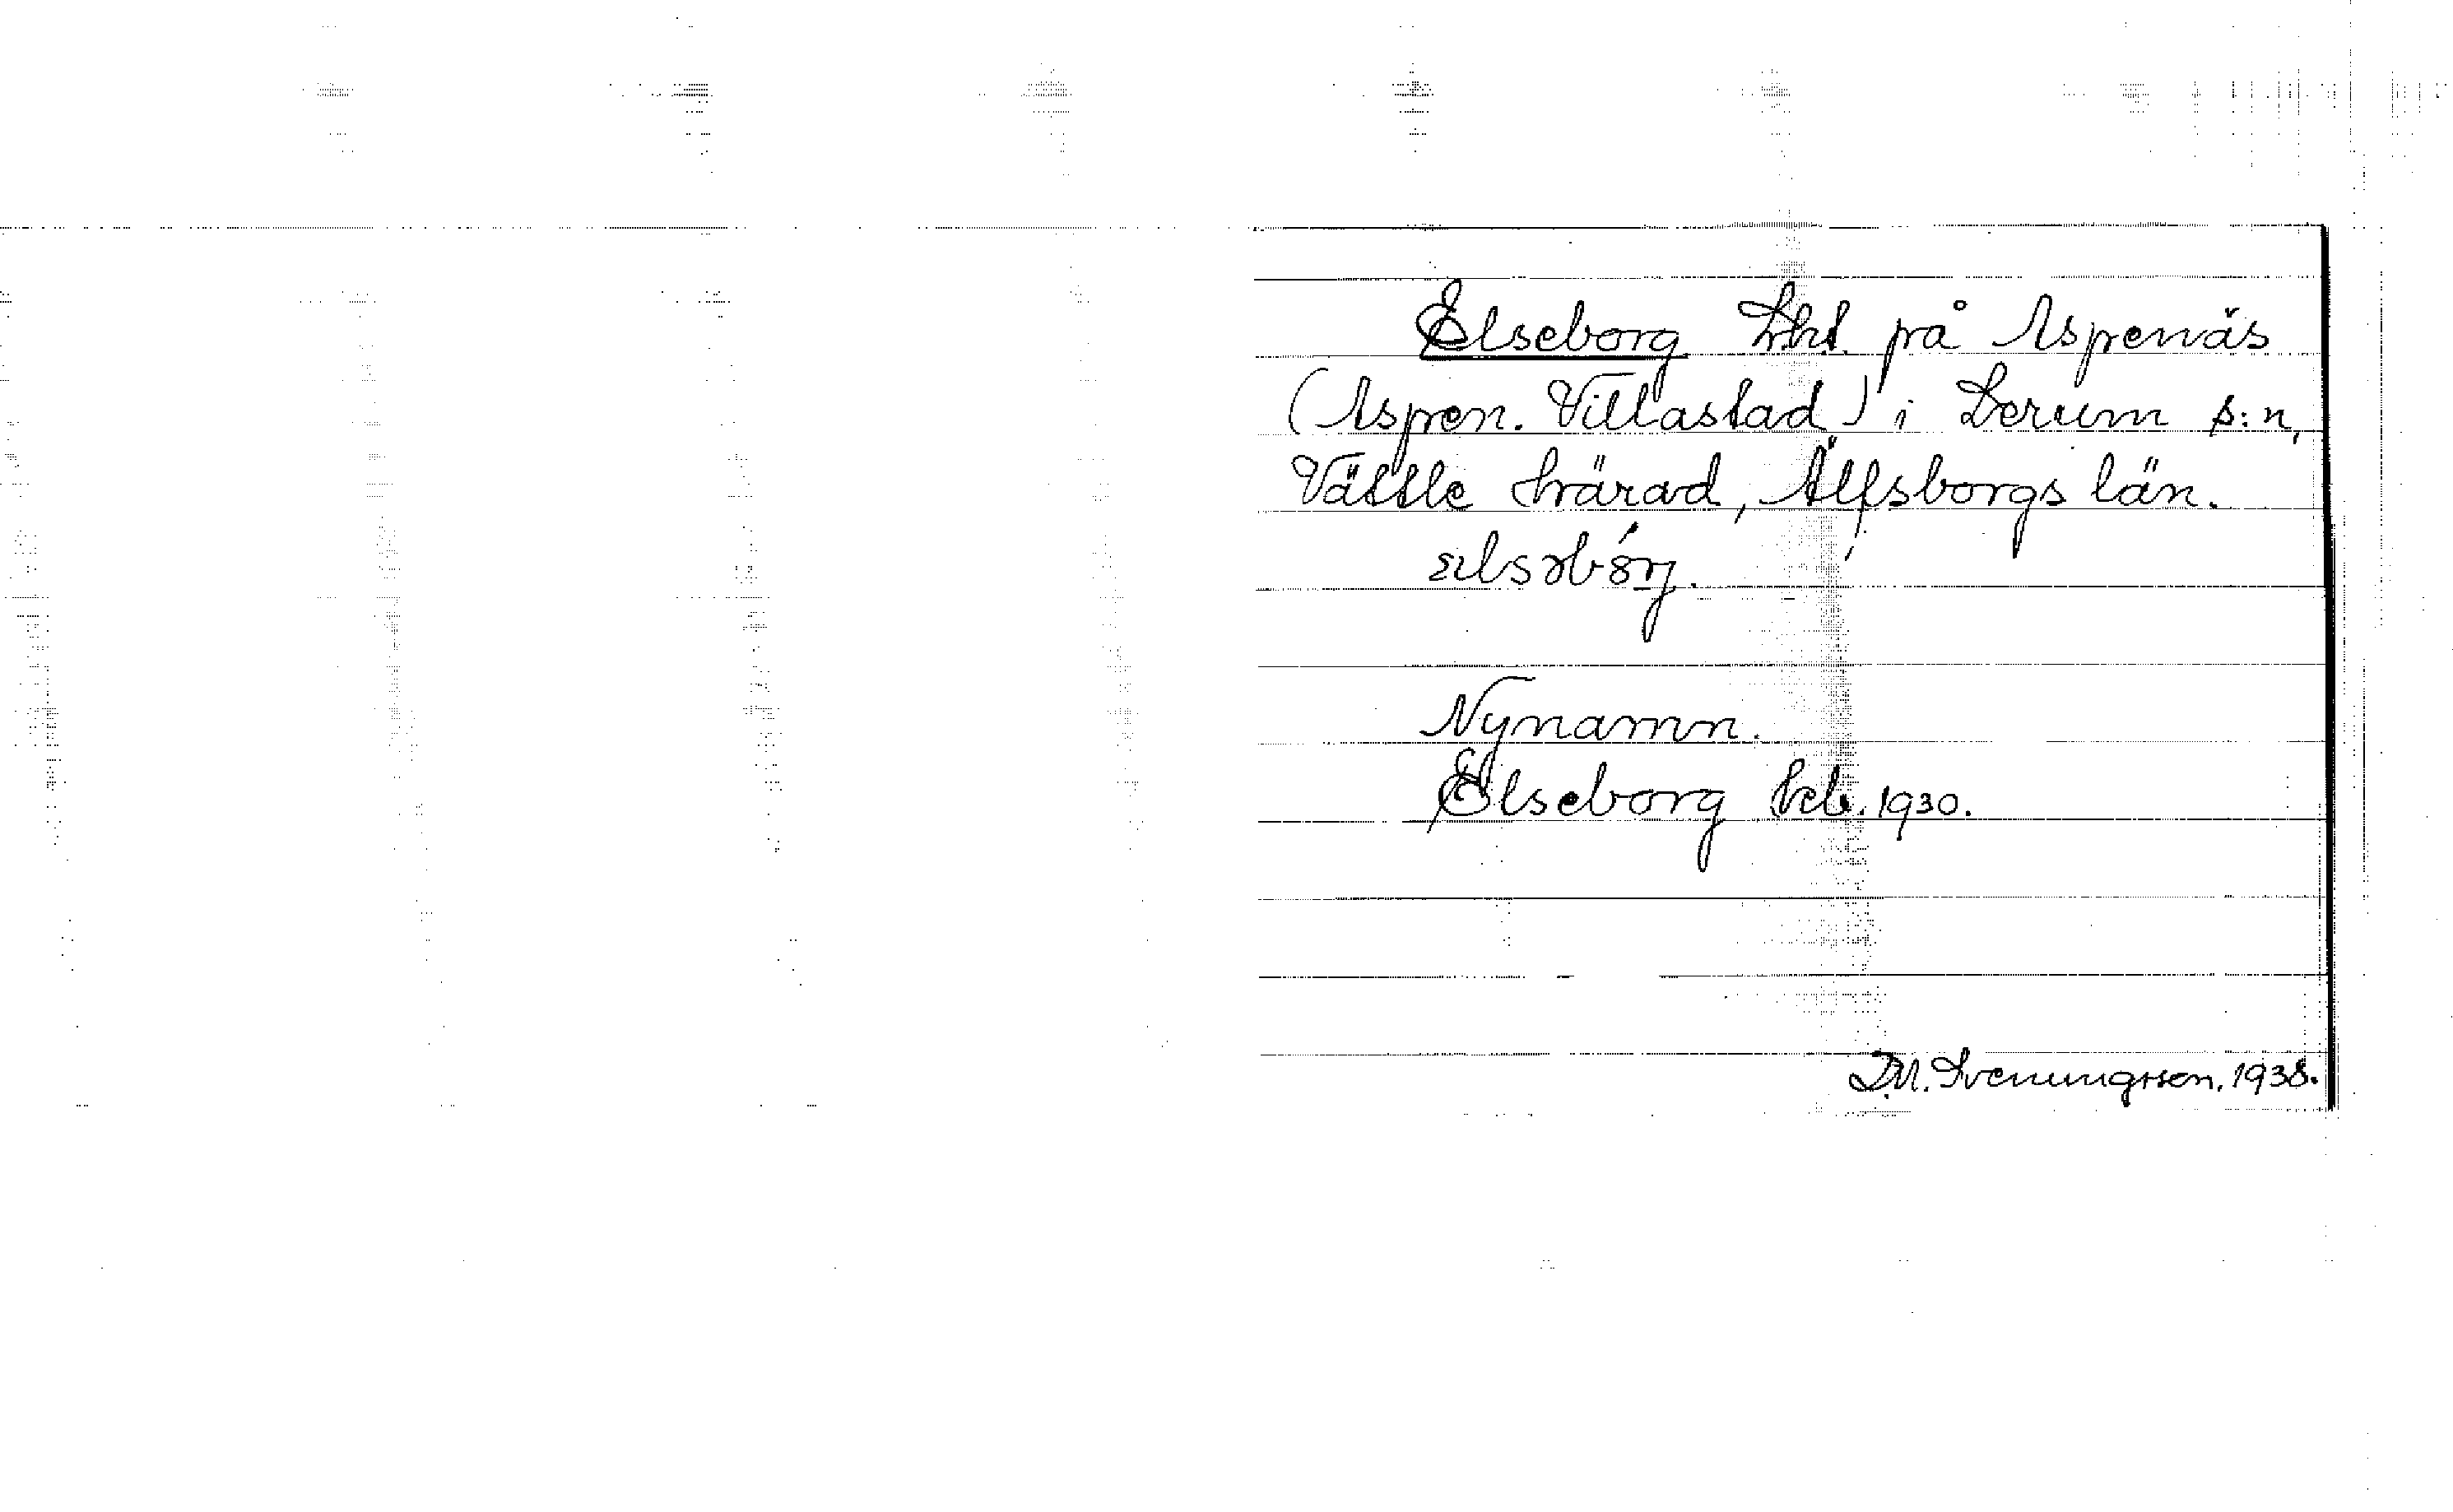 Elseborg Lht. på Aspenäs
(Aspen. Villastad) i Lerum s:n,
Vättle härad, Älfsborgs län.
Nynamn.
Elseborg 1930.
D.M. Sveningsson. 1938.